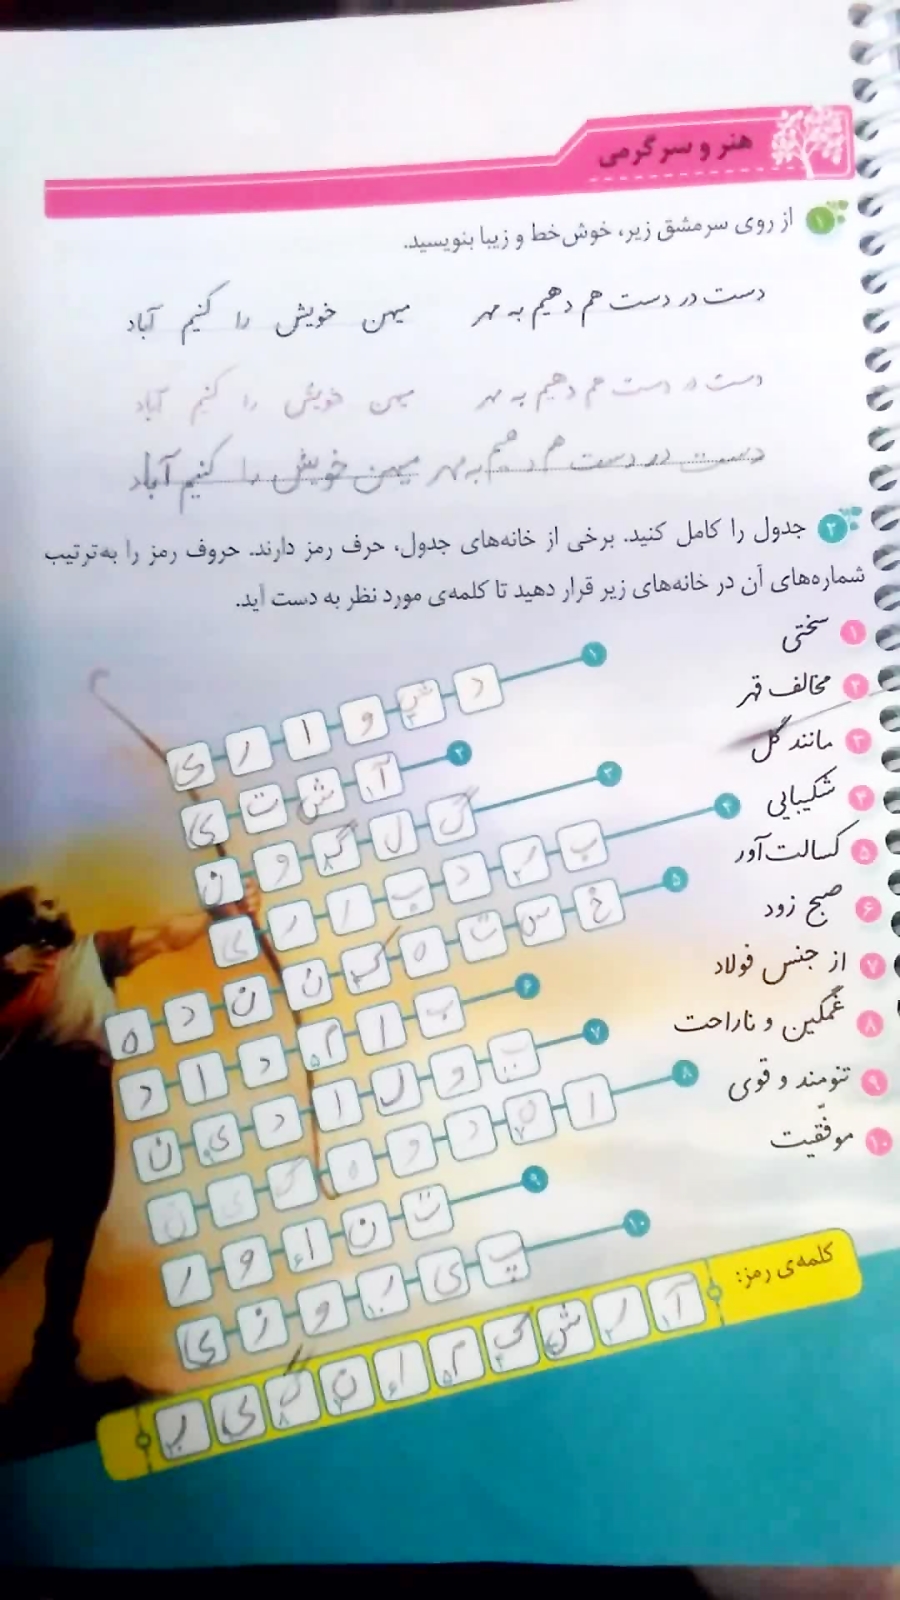 هنر و سرگرمی
۱ از روی سرمشق زیر، خوش‌خط و زیبا بنویسید.
دست در دست هم دهیم به مهر میهن خویش را کنیم آباد
دست در دست هم دهیم به مهر میهن خویش را کنیم آباد
دست در دست هم دهیم به مهر میهن خویش را کنیم آباد
۲ جدول را کامل کنید. برخی از خانه‌های جدول، حرف رمز دارند. حروف رمز را به‌ترتیب
شماره‌های آن در خانه‌های زیر قرار دهید تا کلمه‌ی مورد نظر به دست آید.
۱ سختی
۲ مخالف قهر
۳ مانند گل
۴ شکیبایی
۵ کسالت‌آور
۶ صبح زود
۷ از جنس فولاد
۸ غمگین و ناراحت
۹ تنومند و قوی
۱۰ موفّقیت
۱ د ش و ا ر ی
۲ آ ش ت ی
۳ گ ل گ و ن
۴ ب ر د ب ا ر ی
۵ خ س ت ه ک ن ن د ه
۶ ب ا م د ا د
۷ پ و ل ا د ی ن
۸ ا ن د و ه گ ی ن
۹ ت ن ا و ر
۱۰ پ ی ر و ز ی
کلمه‌ی رمز:
آ ر ش ک م ا ن گ ی ر